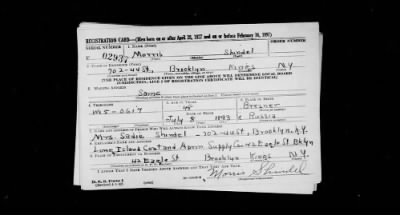 REGISTRATION CARD—(Men born on or after April 28, 1877 and on or before February 16, 1897)
SERIAL NUMBER 1. NAME (Print) ORDER NUMBER
Morris Shindel
2. PLACE OF RESIDENCE (Print)
702-44 St, Brooklyn Kings N.Y.
[THE PLACE OF RESIDENCE GIVEN ON THE LINE ABOVE WILL DETERMINE LOCAL BOARD
JURISDICTION; LINE 2 OF REGISTRATION CERTIFICATE WILL BE IDENTICAL]
3. MAILING ADDRESS
Same
4. TELEPHONE 5. AGE IN YEARS 6. PLACE OF BIRTH
DATE OF BIRTH
July 8 1893 Russia
7. NAME AND ADDRESS OF PERSON WHO WILL ALWAYS KNOW YOUR ADDRESS
Mrs. Sadie Shindel - 702-44 St, Brooklyn, N.Y.
8. EMPLOYER'S NAME AND ADDRESS
Long Island Coat and Apron Supply Co Eagle St Bklyn
9. PLACE OF EMPLOYMENT OR BUSINESS
42 Eagle St Brooklyn Kings N.Y.
I AFFIRM THAT I HAVE VERIFIED ABOVE ANSWERS AND THAT THEY ARE TRUE.
Morris Shindel